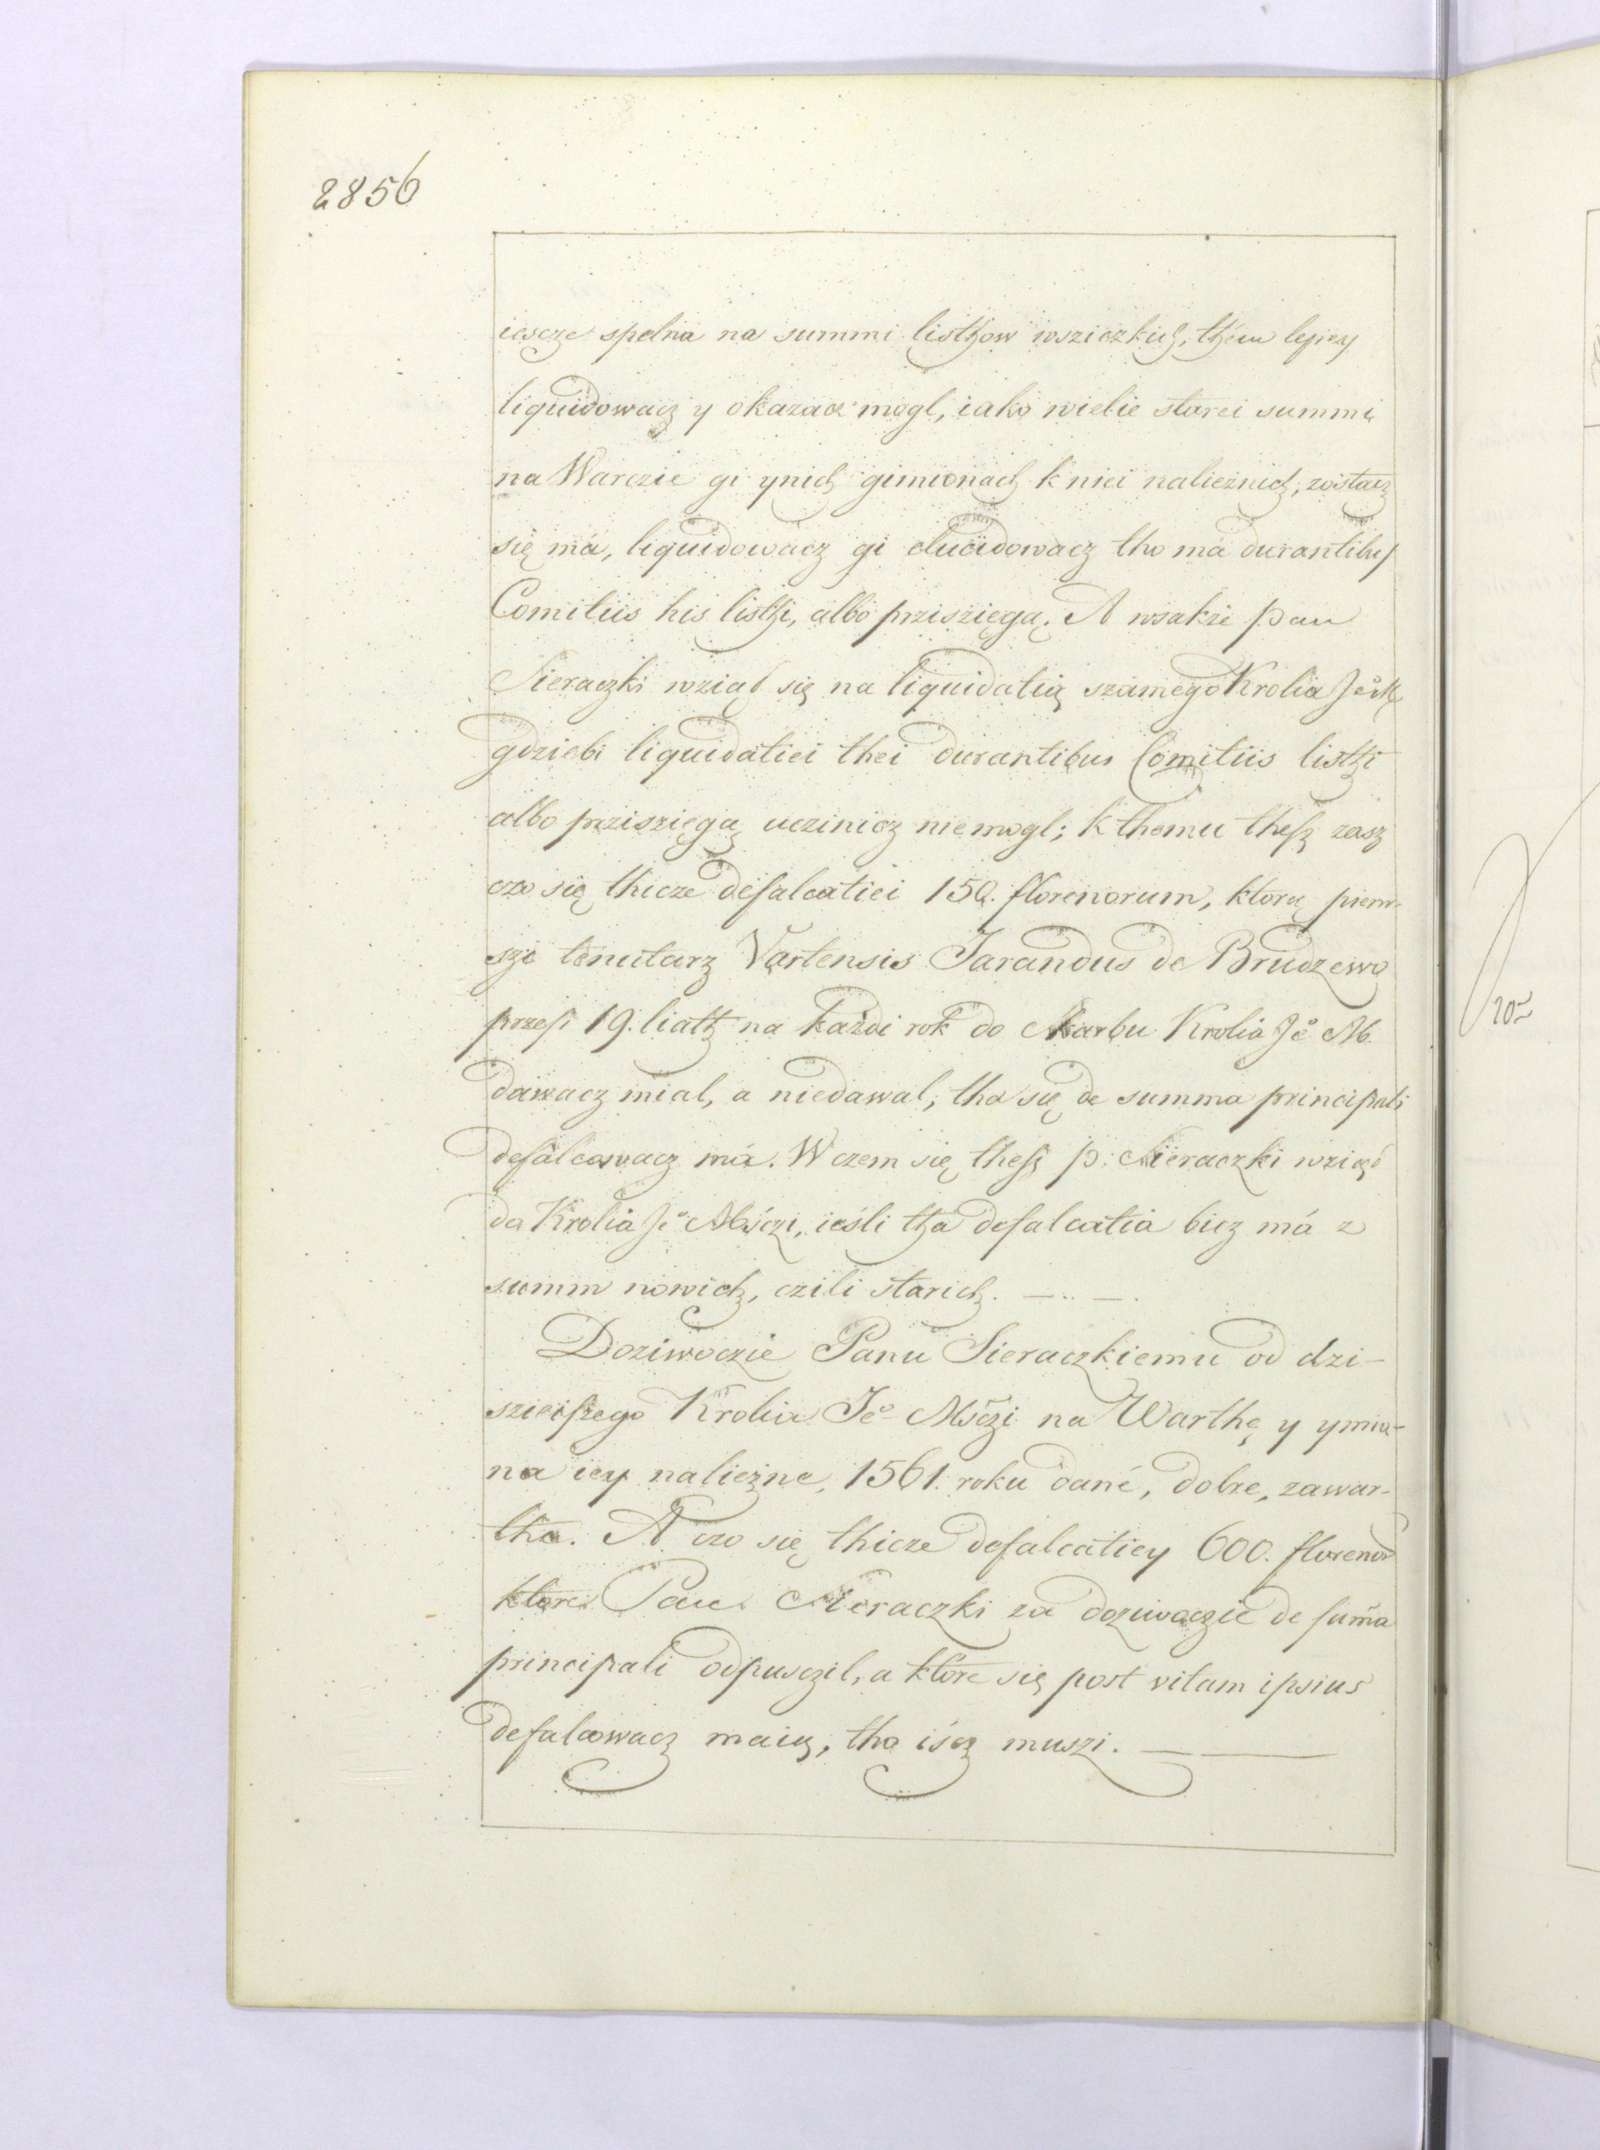 2856
iescze spelna na summi listhow wsziczkich, thém lepiey
liquidowacz y okazacz mogl, iako wielie starei summi
na Warczie gi ynich gimionach k niei należnich, zostacz
się má, liquidowacz gi elucidowacz tho má durantibus
Comitiis his listhi, albo prziszięgą. A wsakże pan
Sieraczki wziął się na liquidatią szamego Krolia Jeº M.
gdziebi liquidatiei thei durantibus Comitiis listhi
albo prziszięgą uczinicz niemogl; k themu thesz zasz
czo się thicze defalcatiei 150. florenorum, ktorą pierw-
szi tenutarz Vartensis Jarandus de Brudzewo
przesz 19. liath na każdi rok do Skarbu Krolia Jeº M.
dawacz mial, a niedawal, tha się de summa principali
defalcowacz má. W czem się thesz p: Sieraczki wziął
do Krolia Jeº Mśczi, ieśli tha defalcatia bicz má z
summ nowich, czili starich. — .. — .
Doziwoczie Panu Sieraczkiemu od dzi-
sziejszego Krolia Jeº Mśczi na Warthę y ymio-
na iey należne, 1561. roku dané, dobre, zawar-
the. A czo się thicze defalcatiey 600. florenow
ktore Pan Sieraczki za doziwoczie de suma
principali odpusczil, a ktore się post vitam ipsius
defalcowacz maią, tho iścz muszi. —
20